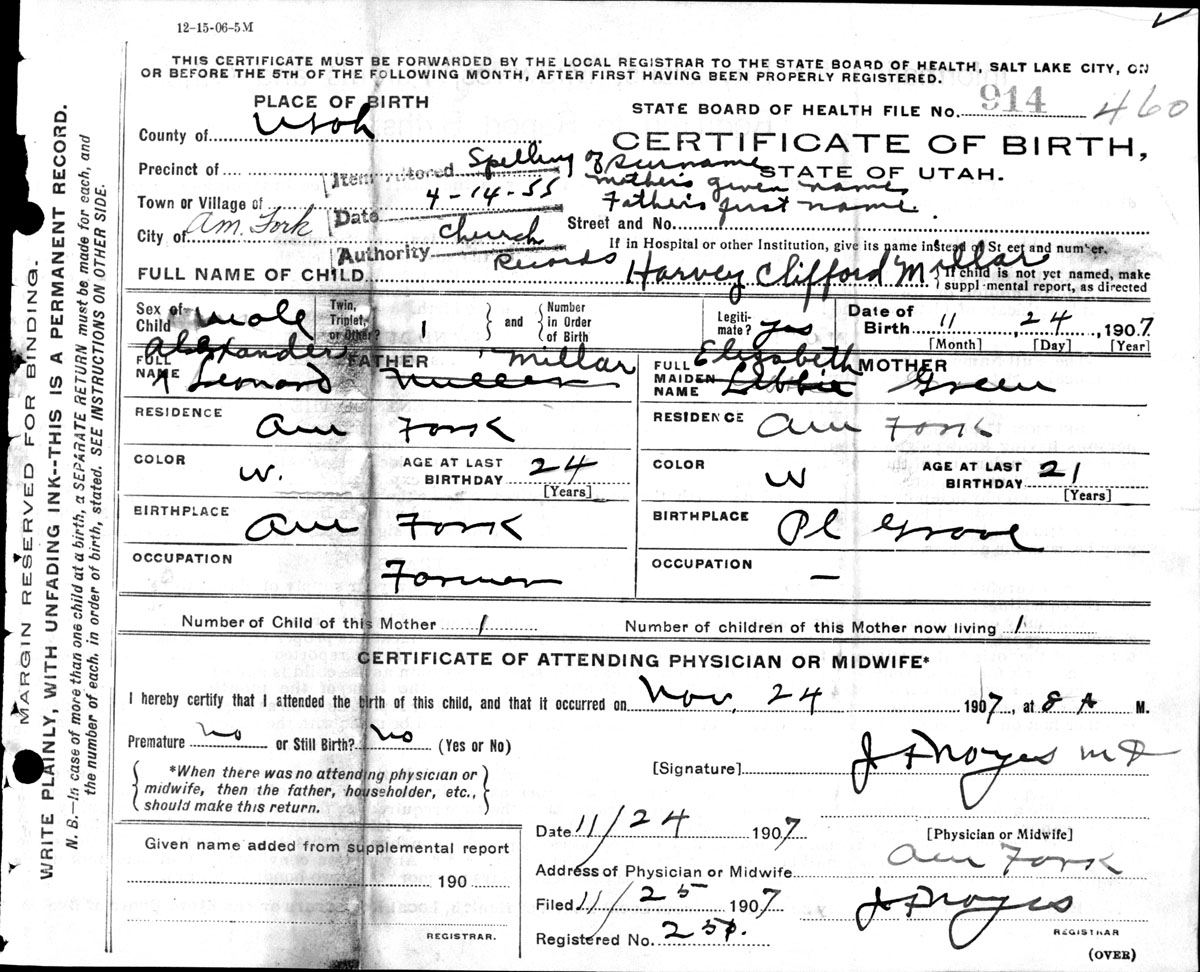 12-15-06-5M
THIS CERTIFICATE MUST BE FORWARDED BY THE LOCAL REGISTRAR TO THE STATE BOARD OF HEALTH, SALT LAKE CITY, ON
OR BEFORE THE 5TH OF THE FOLLOWING MONTH, AFTER FIRST HAVING BEEN PROPERLY REGISTERED.
PLACE OF BIRTH
STATE BOARD OF HEALTH FILE No. 914 460
County of Utah
CERTIFICATE OF BIRTH,
STATE OF UTAH.
Precinct of
Item Altered Spelling of surname
mother's given name
Father's first name.
Town or Village of
Date 4-14-55
City of Am. Fork
Street and No.
Authority Church Records
If in Hospital or other Institution, give its name instead of Street and number.
FULL NAME OF CHILD Harvey Clifford Millar
If child is not yet named, make
supplemental report, as directed
Sex of Child male
Twin, Triplet, or Other? 1 and Number in Order of Birth
Legitimate? yes
Date of Birth 11 24, 1907
[Month] [Day] [Year]
FATHER
FULL NAME Alexander Leonard Millar
MOTHER
FULL MAIDEN NAME Elizabeth Libbie Green
RESIDENCE Am Fork
RESIDENCE Am Fork
COLOR W. AGE AT LAST BIRTHDAY 24 [Years]
COLOR W AGE AT LAST BIRTHDAY 21 [Years]
BIRTHPLACE Am Fork
BIRTHPLACE Pl Grove
OCCUPATION Farmer
OCCUPATION –
Number of Child of this Mother 1
Number of children of this Mother now living 1
CERTIFICATE OF ATTENDING PHYSICIAN OR MIDWIFE*
I hereby certify that I attended the birth of this child, and that it occurred on Nov. 24 1907, at 8 A M.
Premature No or Still Birth? No (Yes or No)
*When there was no attending physician or
midwife, then the father, householder, etc.,
should make this return.
[Signature] J F Noyes MD
[Physician or Midwife]
Date 11/24 1907
Address of Physician or Midwife Am Fork
Filed 11/25 1907 J F Noyes
REGISTRAR
Registered No.
(OVER)
Given name added from supplemental report
190
REGISTRAR.
MARGIN RESERVED FOR BINDING.
WRITE PLAINLY, WITH UNFADING INK--THIS IS A PERMANENT RECORD.
N. B.—In case of more than one child at a birth, a SEPARATE RETURN must be made for each, and
the number of each, in order of birth, stated. SEE INSTRUCTIONS ON OTHER SIDE.